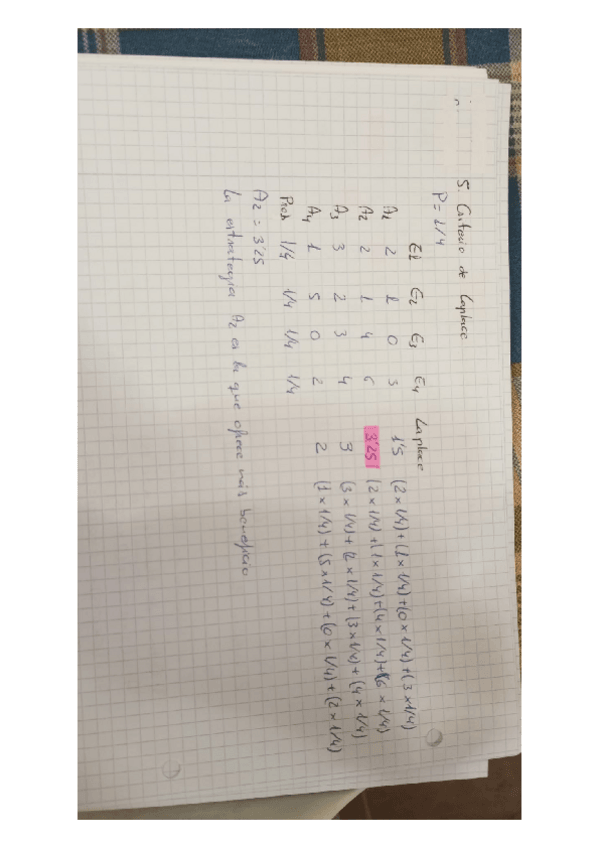 5. Criterio de Laplace
P = 1/4
E1 E2 E3 E4 Laplace
A1 2 1 0 3 1'5 (2 x 1/4) + (1 x 1/4) + (0 x 1/4) + (3 x 1/4)
A2 2 1 4 6 3'25 (2 x 1/4) + (1 x 1/4) + (4 x 1/4) + (6 x 1/4)
A3 3 2 3 4 3 (3 x 1/4) + (2 x 1/4) + (3 x 1/4) + (4 x 1/4)
A4 1 5 0 2 2 (1 x 1/4) + (5 x 1/4) + (0 x 1/4) + (2 x 1/4)
Prob 1/4 1/4 1/4 1/4
A2 = 3'25
La estrategia A2 es la que ofrece más beneficio